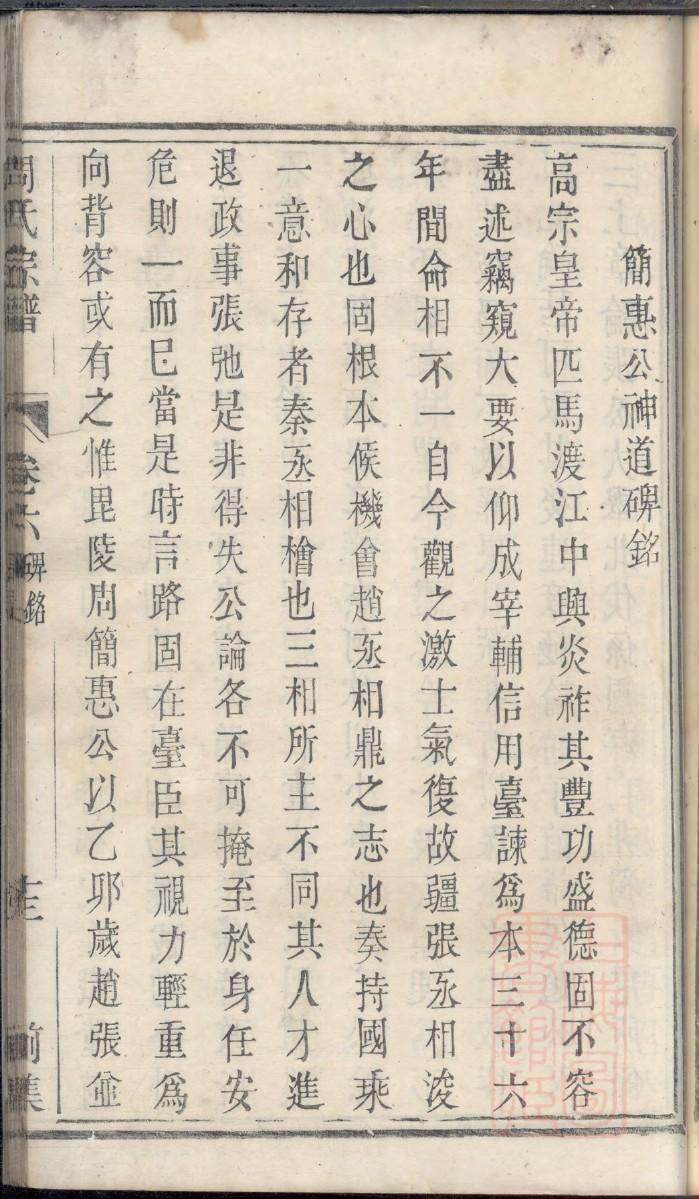 簡惠公神道碑銘
高宗皇帝匹馬渡江中興炎祚其豐功盛德固不容
盡述竊窺大要以仰成宰輔信用臺諫爲本三十六
年間命相不一自今觀之激士氣復故疆張丞相浚
之心也固根本候機會趙丞相鼎之志也奏持國乘
一意和存者秦丞相檜也三相所主不同其人才進
退政事張弛是非得失公論各不可掩至於身任安
危則一而巳當是時言路固在臺臣其視力輕重爲
向背容或有之惟毘陵周簡惠公以乙卯歲趙張並
周氏宗譜
卷六
碑銘
前集